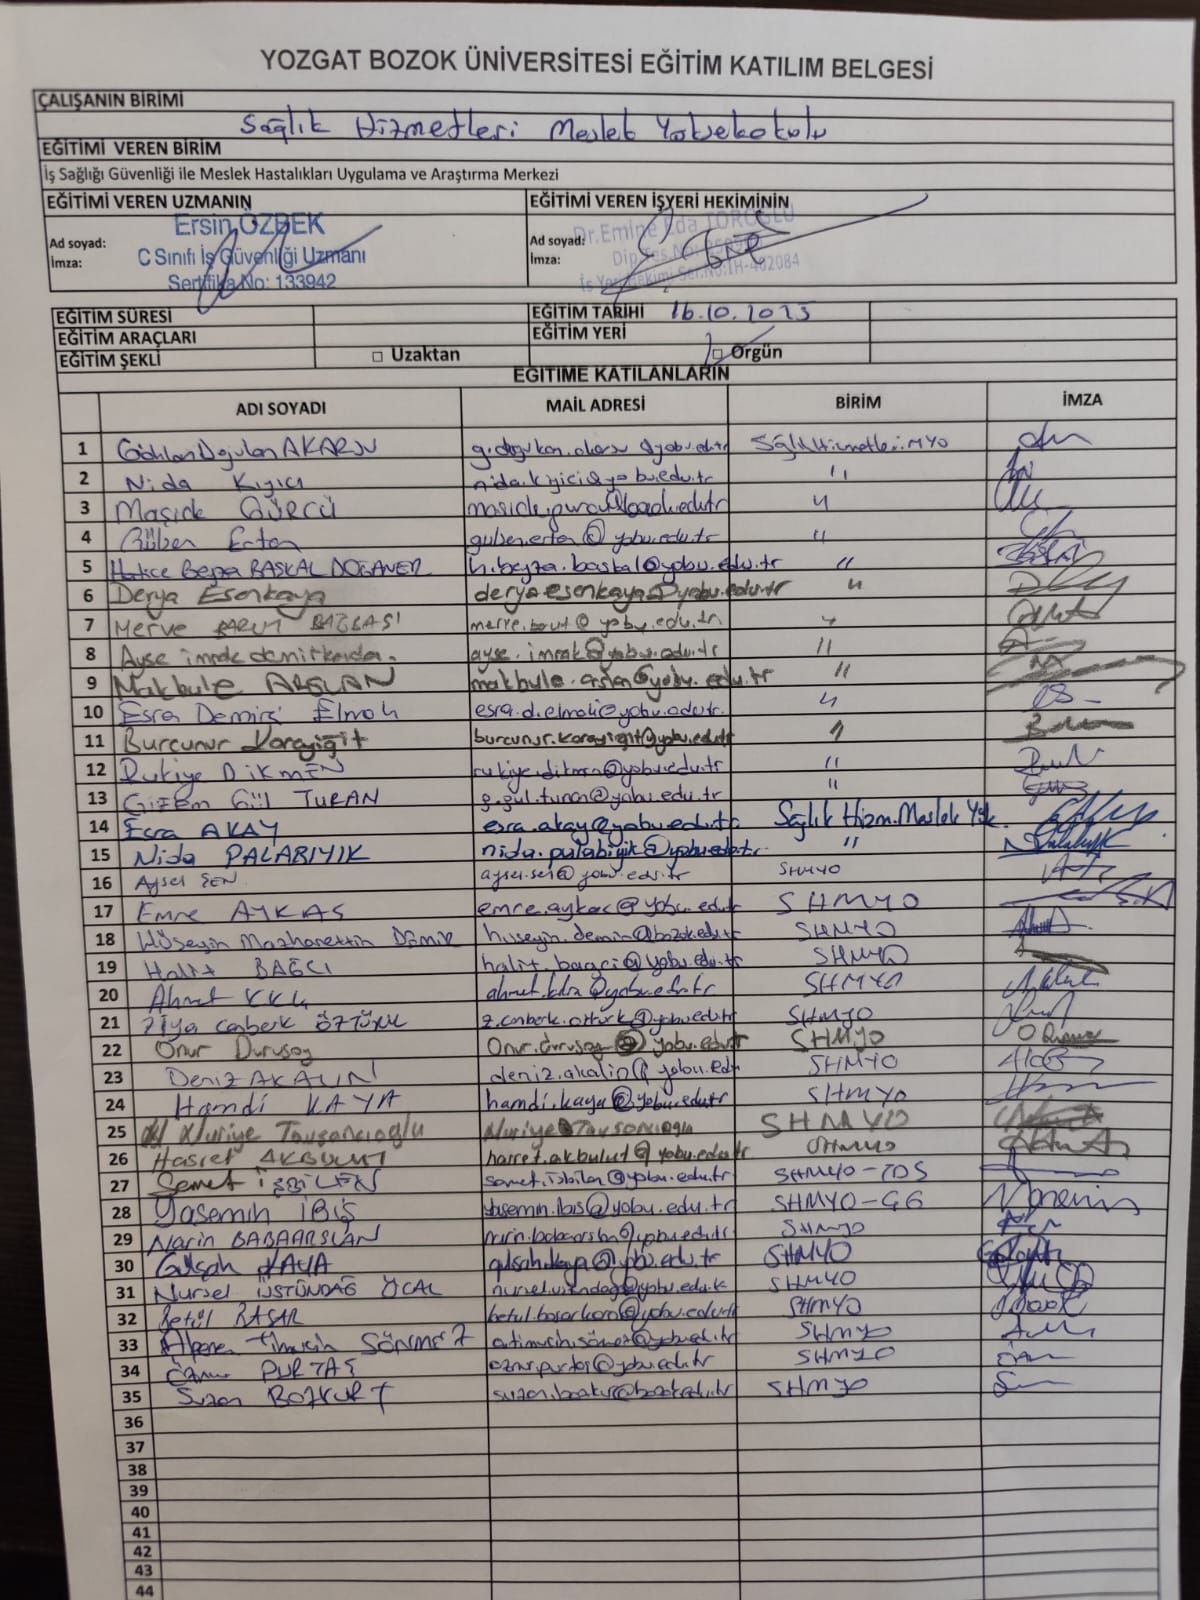 YOZGAT BOZOK ÜNİVERSİTESİ EĞİTİM KATILIM BELGESİ
ÇALIŞANIN BİRİMİ
Sağlık Hizmetleri Meslek Yüksekokulu
EĞİTİMİ VEREN BİRİM
İş Sağlığı Güvenliği ile Meslek Hastalıkları Uygulama ve Araştırma Merkezi
EĞİTİMİ VEREN UZMANIN EĞİTİMİ VEREN İŞYERİ HEKİMİNİN
Ad soyad: Ersin ÖZBEK Ad soyad: Dr. Emine Eda
İmza: C Sınıfı İş Güvenliği Uzmanı İmza:
Sertifika No: 133942
EĞİTİM SÜRESİ EĞİTİM TARİHİ 16.10.2025
EĞİTİM ARAÇLARI EĞİTİM YERİ
EĞİTİM ŞEKLİ □ Uzaktan □ Örgün
EĞİTİME KATILANLARIN
ADI SOYADI MAIL ADRESİ BİRİM İMZA
1 AKARSU Sağlık Hizmetleri MYO
2 Nida Kıyıcı nida.kiyici@yobu.edu.tr "
3 Maşide "
4 Gülben Ertan gulben.ertan@yobu.edu.tr "
5 Hatice Beyza BASKAL DOĞANER h.beyza.baskal@yobu.edu.tr "
6 Derya Esenkaya derya.esenkaya@yobu.edu.tr "
7 Merve "
8 Ayşe ayse.imrak@yobu.edu.tr "
9 Makbule ARSLAN makbule.arslan@yobu.edu.tr "
10 Esra Demirci Elmalı esra.d.elmali@yobu.edu.tr "
11 Burcunur Karayiğit burcunur.karayigit@yobu.edu.tr "
12 Rukiye DİKMEN rukiye.dikmen@yobu.edu.tr "
13 Gizem Gül TURAN g.gul.turan@yobu.edu.tr "
14 Esra AKAY esra.akay@yobu.edu.tr Sağlık Hizm. Meslek Yük.
15 Nida PALABIYIK nida.palabiyik@yobu.edu.tr "
16 Aysel ŞEN aysel.sen@yobu.edu.tr SHMYO
17 Emre AYKAÇ emre.aykac@yobu.edu.tr SHMYO
18 Hüseyin Mazharettin DEMİR huseyin.demir@bozok.edu.tr SHMYO
19 Halit BAĞCI halit.bagci@yobu.edu.tr SHMYO
20 Ahmet SHMYO
21 Ziya Canberk ÖZTÜRK z.canberk.ozturk@yobu.edu.tr SHMYO
22 Onur Durusoy onur.durusoy@yobu.edu.tr SHMYO
23 Deniz AKALIN deniz.akalin@yobu.edu SHMYO
24 Hamdi KAYA hamdi.kaya@yobu.edu.tr SHMYO
25 Nuriye Tavşancıoğlu Nuriye Tavsancıoglu SHMYO
26 Hasret AKBULUT hasret.akbulut@yobu.edu.tr SHMYO
27 Samet İŞBİLEN samet.isbilen@yobu.edu.tr SHMYO-TDS
28 Yasemin İBİŞ yasemin.ibis@yobu.edu.tr SHMYO-GG
29 Narin BABAARSLAN narin.babaarslan@yobu.edu.tr SHMYO
30 Gülşah KAYA gulsah.kaya@yobu.edu.tr SHMYO
31 Nursel ÜSTÜNDAĞ ÖCAL SHMYO
32 Betül BAŞAR SHMYO
33 Alperen Timuçin SÖNMEZ SHMYO
34 PURTAŞ SHMYO
35 Suzan BOZKURT SHMYO
36
37
38
39
40
41
42
43
44